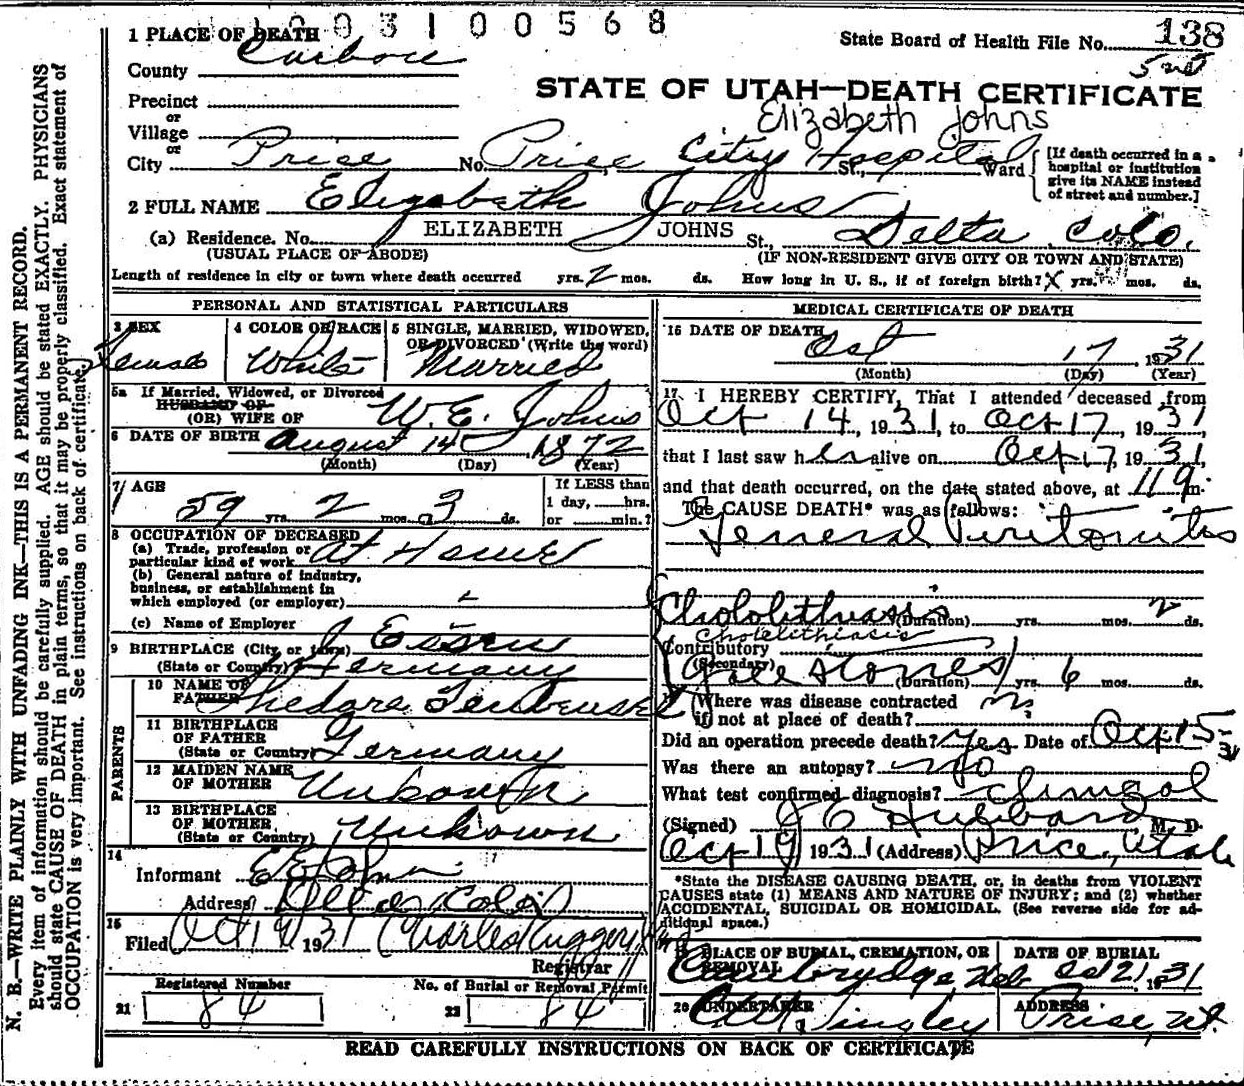 003100568
1 PLACE OF DEATH
State Board of Health File No. 138
County Carbon
STATE OF UTAH—DEATH CERTIFICATE
Precinct
or
Village
or
Elizabeth Johns
City Price No. Price City Hospital St., Ward
[If death occurred in a hospital or institution give its NAME instead of street and number.]
2 FULL NAME Elizabeth Johns
ELIZABETH JOHNS
(a) Residence. No. St., Delta Colo.
(USUAL PLACE OF ABODE) (IF NON-RESIDENT GIVE CITY OR TOWN AND STATE)
Length of residence in city or town where death occurred yrs. 2 mos. ds. How long in U. S., if of foreign birth? X yrs. mos. ds.
PERSONAL AND STATISTICAL PARTICULARS
3 SEX Female
4 COLOR OR RACE White
5 SINGLE, MARRIED, WIDOWED, OR DIVORCED (Write the word) Married
5a If Married, Widowed, or Divorced
HUSBAND OF
(OR) WIFE OF W. E. Johns
6 DATE OF BIRTH August 14 1872
(Month) (Day) (Year)
7 AGE 59 yrs. 2 mos. 3 ds.
If LESS than 1 day, hrs. or min.?
8 OCCUPATION OF DECEASED
(a) Trade, profession or particular kind of work At Home
(b) General nature of industry, business, or establishment in which employed (or employer)
(c) Name of Employer
9 BIRTHPLACE (City, or town) Essen
(State or Country) Germany
PARENTS
10 NAME OF FATHER Thedore
11 BIRTHPLACE OF FATHER (State or Country) Germany
12 MAIDEN NAME OF MOTHER Unkown
13 BIRTHPLACE OF MOTHER (State or Country) Unkown
14
Informant
Address Delta Colo
15
Filed Oct 19 1931 Charles Ruggeri
Registrar
Registered Number
21 84
No. of Burial or Removal Permit
22 84
MEDICAL CERTIFICATE OF DEATH
16 DATE OF DEATH Oct 17 1931
(Month) (Day) (Year)
17 I HEREBY CERTIFY, That I attended deceased from
Oct 14, 1931, to Oct 17, 1931,
that I last saw her alive on Oct 17, 1931,
and that death occurred, on the date stated above, at 11 9 m.
The CAUSE DEATH* was as follows:
General Peritonitis
Chololithiasis (Duration) yrs. mos. 2 ds.
Cholelithiasis
Contributory
(Secondary) Gall Stones (Duration) yrs. 6 mos. ds.
Where was disease contracted
if not at place of death?
Did an operation precede death? Yes Date of Oct 15-31
Was there an autopsy? No
What test confirmed diagnosis?
(Signed) J C Hubbard M. D.
Oct 19 1931 (Address) Price, Utah
*State the DISEASE CAUSING DEATH, or, in deaths from VIOLENT
CAUSES state (1) MEANS AND NATURE OF INJURY; and (2) whether
ACCIDENTAL, SUICIDAL OR HOMICIDAL. (See reverse side for additional space.)
PLACE OF BURIAL, CREMATION, OR REMOVAL Cambrydge, Neb
DATE OF BURIAL Oct 21, 1931
20 UNDERTAKER
ADDRESS Price, Ut.
READ CAREFULLY INSTRUCTIONS ON BACK OF CERTIFICATE
N. B.—WRITE PLAINLY WITH UNFADING INK—THIS IS A PERMANENT RECORD.
Every item of information should be carefully supplied. AGE should be stated EXACTLY. PHYSICIANS
should state CAUSE OF DEATH in plain terms, so that it may be properly classified. Exact statement of
OCCUPATION is very important. See instructions on back of certificate.